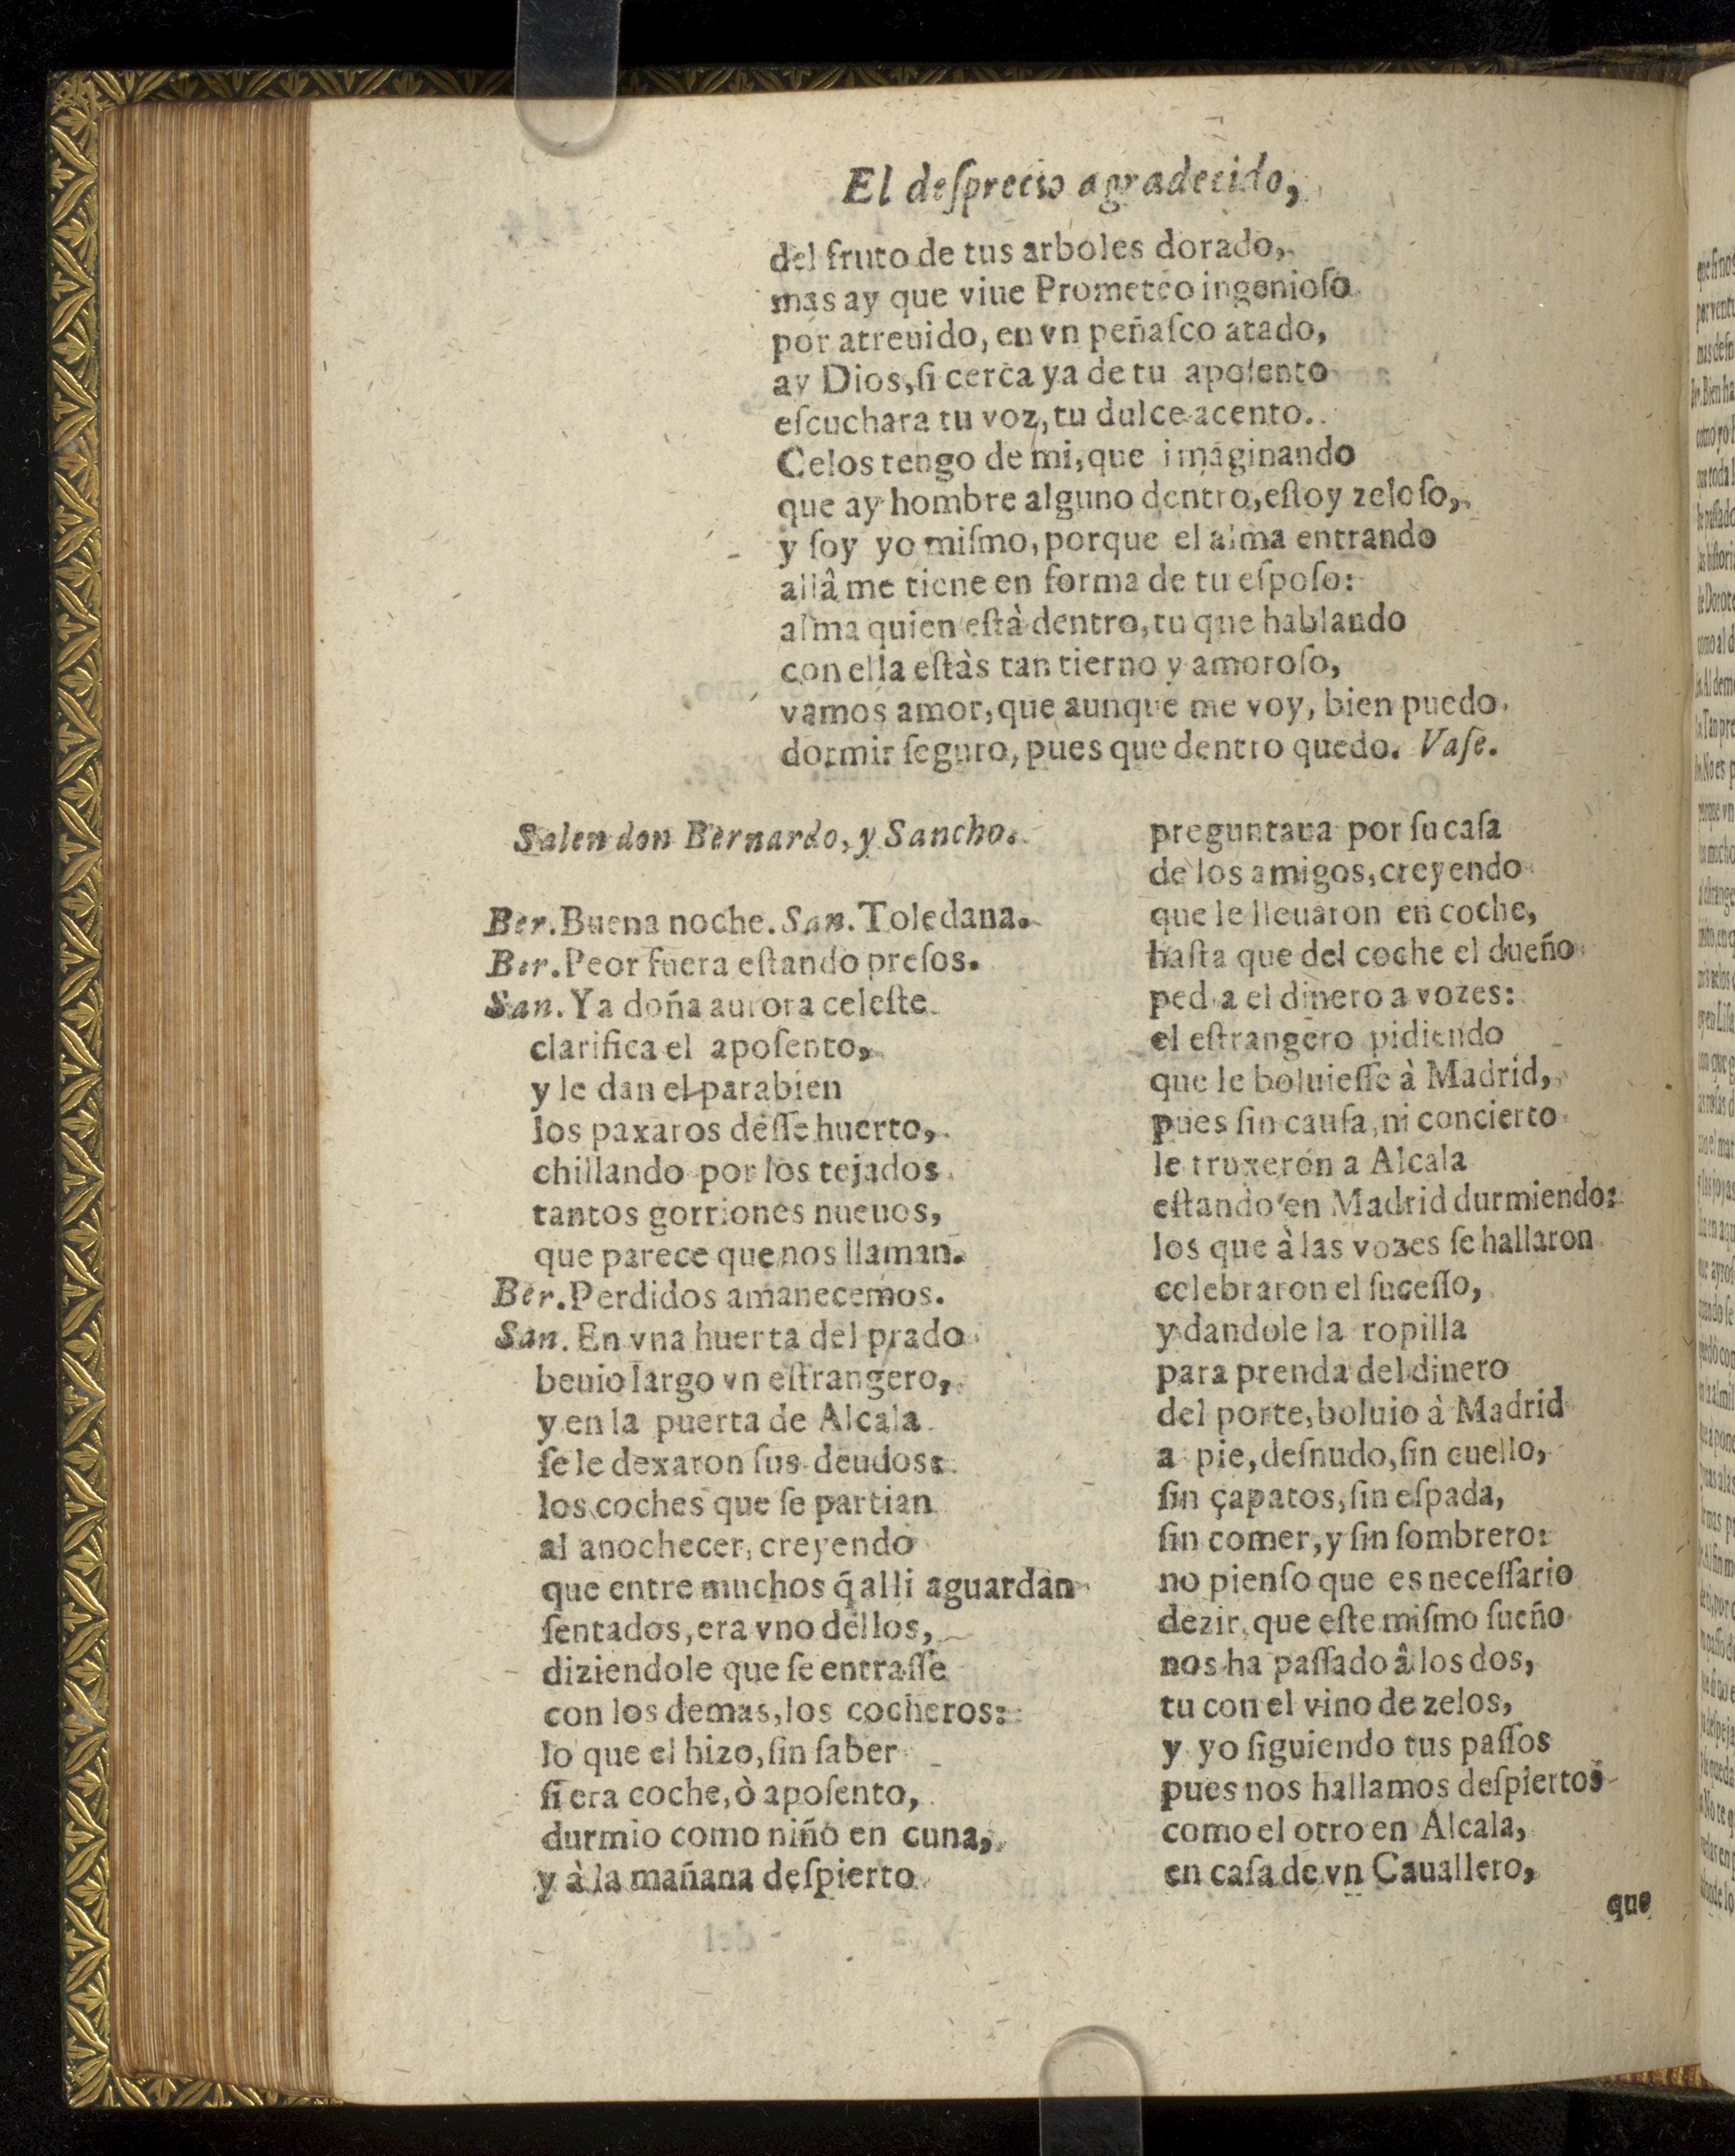 El deſprecio agradecido,
del fruto de tus arboles dorado,
mas ay que viue Prometeo ingenioſo
por atreuido, en vn peñaſco atado,
ay Dios, ſi cerca ya de tu apoſento
eſcuchara tu voz, tu dulce acento.
Celos tengo de mi, que imaginando
que ay hombre alguno dentro, eſtoy zeloſo,
y ſoy yo miſmo, porque el alma entrando
allâ me tiene en forma de tu eſpoſo:
alma quien eſtà dentro, tu que hablando
con ella eſtàs tan tierno y amoroſo,
vamos amor, que aunque me voy, bien puedo
dormir ſeguro, pues que dentro quedo. Vaſe.
Salen don Bernardo, y Sancho.
Ber. Buena noche. San. Toledana.
Ber. Peor fuera eſtando preſos.
San. Ya doña aurora celeſte
clarifica el apoſento,
y le dan el parabien
los paxaros deſſe huerto,
chillando por los tejados
tantos gorriones nueuos,
que parece que nos llaman.
Ber. Perdidos amanecemos.
San. En vna huerta del prado
beuio largo vn eſtrangero,
y en la puerta de Alcala
ſe le dexaron ſus deudos:
los coches que ſe partian
al anochecer, creyendo
que entre muchos q̃ alli aguardan
ſentados, era vno dellos,
diziendole que ſe entraſſe
con los demas, los cocheros:
lo que el hizo, ſin ſaber
ſi era coche, ò apoſento,
durmio como niño en cuna,
y à la mañana deſpierto
preguntaua por ſu caſa
de los amigos, creyendo
que le lleuaron en coche,
haſta que del coche el dueño
pedia el dinero a vozes:
el eſtrangero pidiendo
que le boluieſſe à Madrid,
pues ſin cauſa, ni concierto
le truxeron a Alcala
eſtando en Madrid durmiendo:
los que à las vozes ſe hallaron
celebraron el ſuceſſo,
y dandole la ropilla
para prenda del dinero
del porte, boluio à Madrid
a pie, deſnudo, ſin cuello,
ſin çapatos, ſin eſpada,
ſin comer, y ſin ſombrero:
no pienſo que es neceſſario
dezir, que eſte miſmo ſueño
nos ha paſſado â los dos,
tu con el vino de zelos,
y yo ſiguiendo tus paſſos
pues nos hallamos deſpiertos
como el otro en Alcala,
en caſa de vn Cauallero,
que